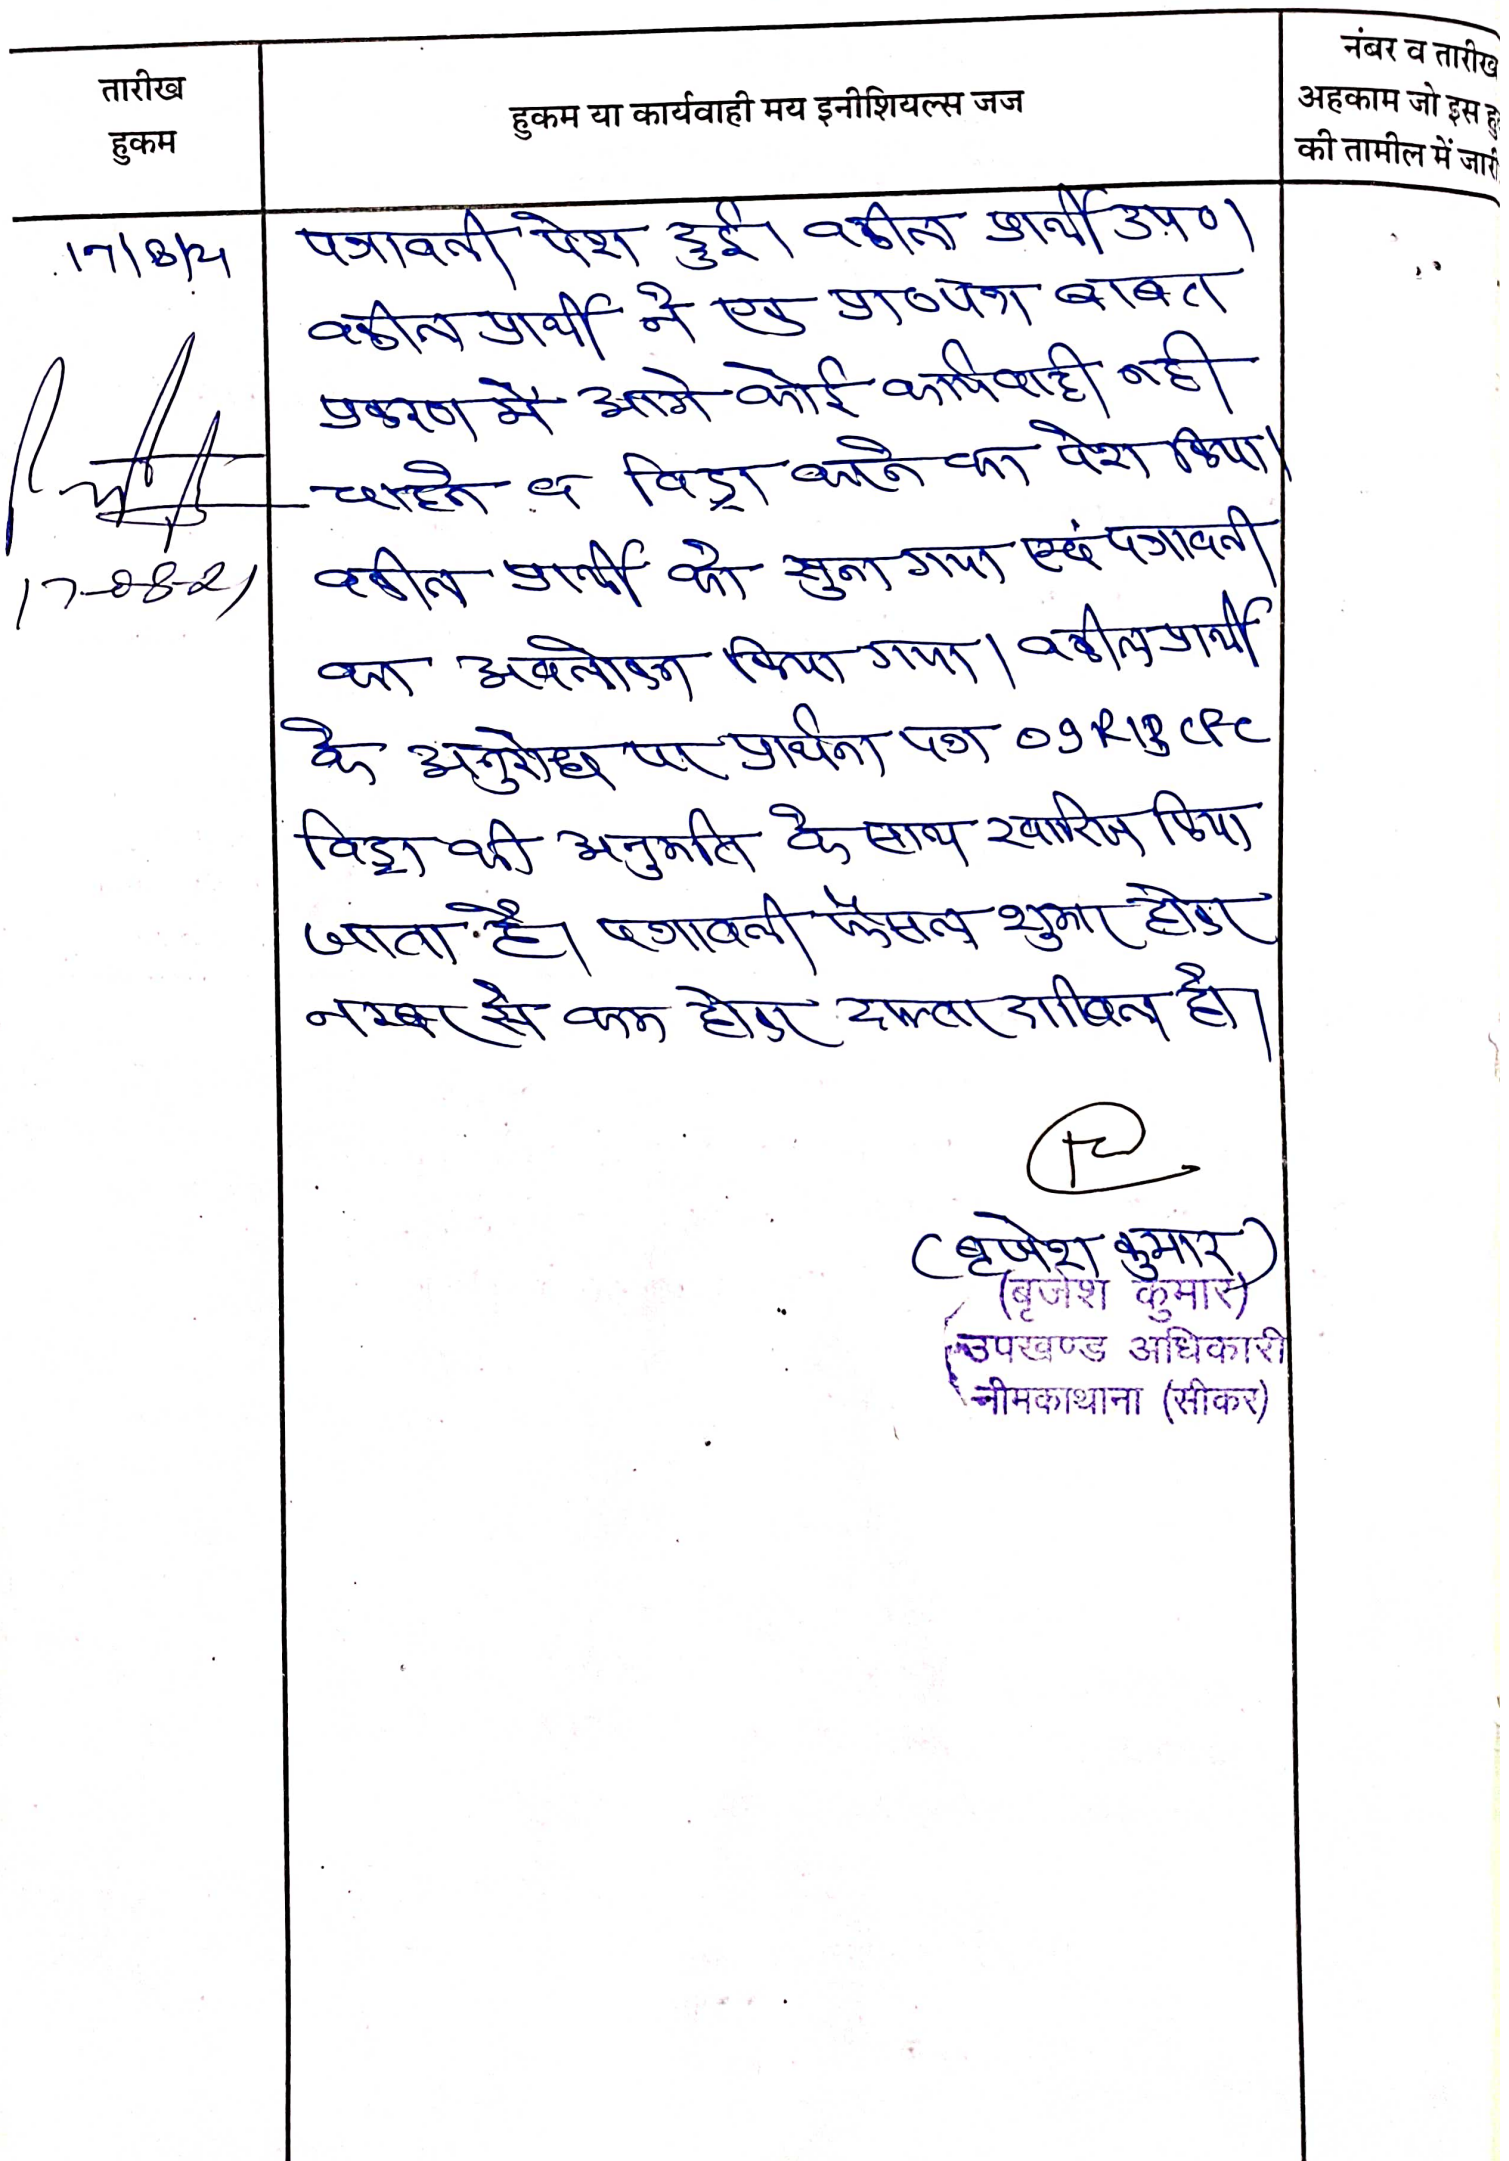 तारीख
हुकम
हुकम या कार्यवाही मय इनीशियल्स जज
नंबर व तारीख
अहकाम जो इस हु
की तामील में जारी
17/8/21
पत्रावली पेश हुई। वकील प्रार्थी उप०।
वकील प्रार्थी ने एक प्रा०पत्र बाबत
प्रकरण में आगे कोई कार्यवाही नही
चाहने व विड्रा करने का पेश किया।
वकील प्रार्थी को सुना गया एवं पत्रावली
का अवलोकन किया गया। वकील प्रार्थी
के अनुरोध पर प्रार्थना पत्र CPC
विड्रा की अनुमति के साथ खारिज किया
जाता है। पत्रावली फैसल शुमार होकर
नम्बर से कम होकर दाखिल हो।
17-08-21
(बृजेश कुमार)
(बृजेश कुमार)
उपखण्ड अधिकारी
नीमकाथाना (सीकर)